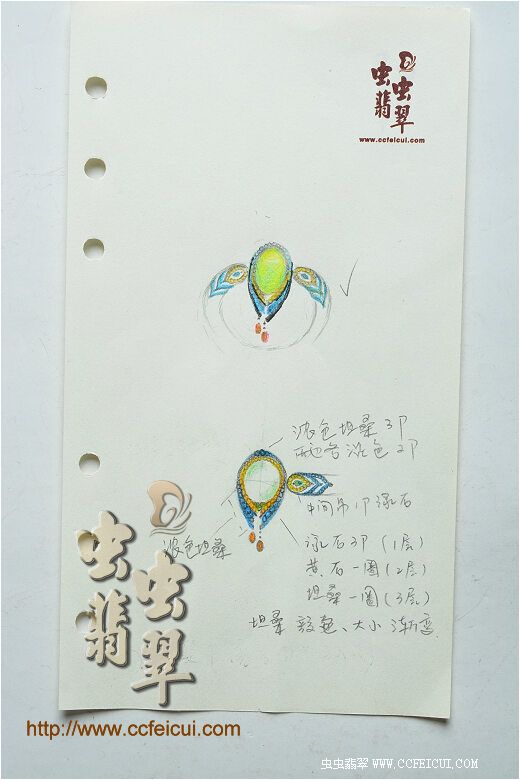 虫虫翡翠
www.ccfeicui.com
浓色坦桑 3P
2P
中间吊1P 绿石
浓色坦桑
绿石3P (1层)
黄石一圈 (2层)
坦桑一圈 (3层)
坦桑 颜色、大小渐变
虫虫翡翠
http://www.ccfeicui.com
虫虫翡翠 WWW.CCFEICUI.COM